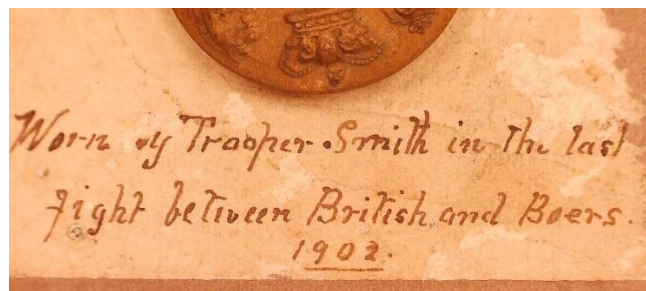 Worn by Trooper Smith in the last
fight between British and Boers.
1902.